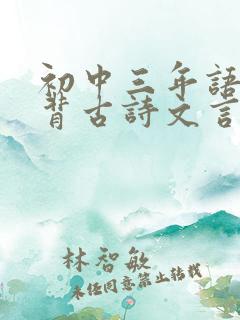 初中三年語
背古詩文言
林智敏
未任同意禁止转载